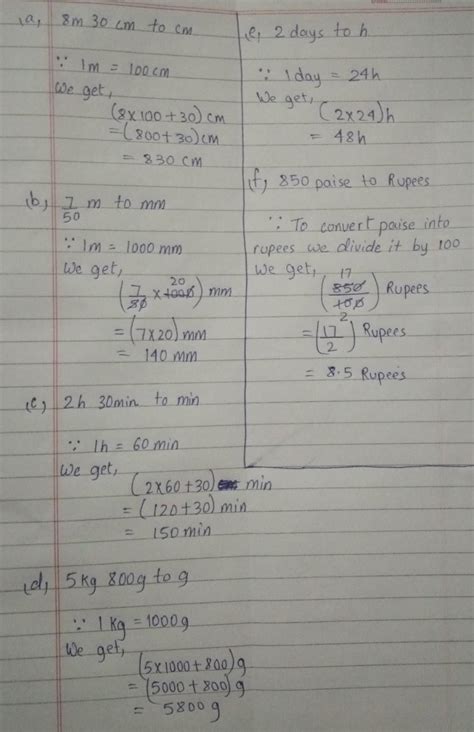 (a) 8m 30 cm to cm
∵ 1m = 100cm
We get,
(8×100+30) cm
= (800+30) cm
= 830 cm
(b) 7/50 m to mm
∵ 1m = 1000 mm
We get,
20
(7/50 × 1000) mm
= (7×20) mm
= 140 mm
(c) 2h 30min to min
∵ 1h = 60 min
We get,
(2×60+30) min
= (120+30) min
= 150 min
(d) 5Kg 800g to g
∵ 1 Kg = 1000g
We get,
(5×1000+800) g
= (5000+800) g
= 5800 g
(e) 2 days to h
∵ 1 day = 24h
We get,
(2×24) h
= 48h
(f) 850 paise to Rupees
∵ To convert paise into
rupees we divide it by 100
We get,
17
(850/100) Rupees
2
= (17/2) Rupees
= 8.5 Rupees